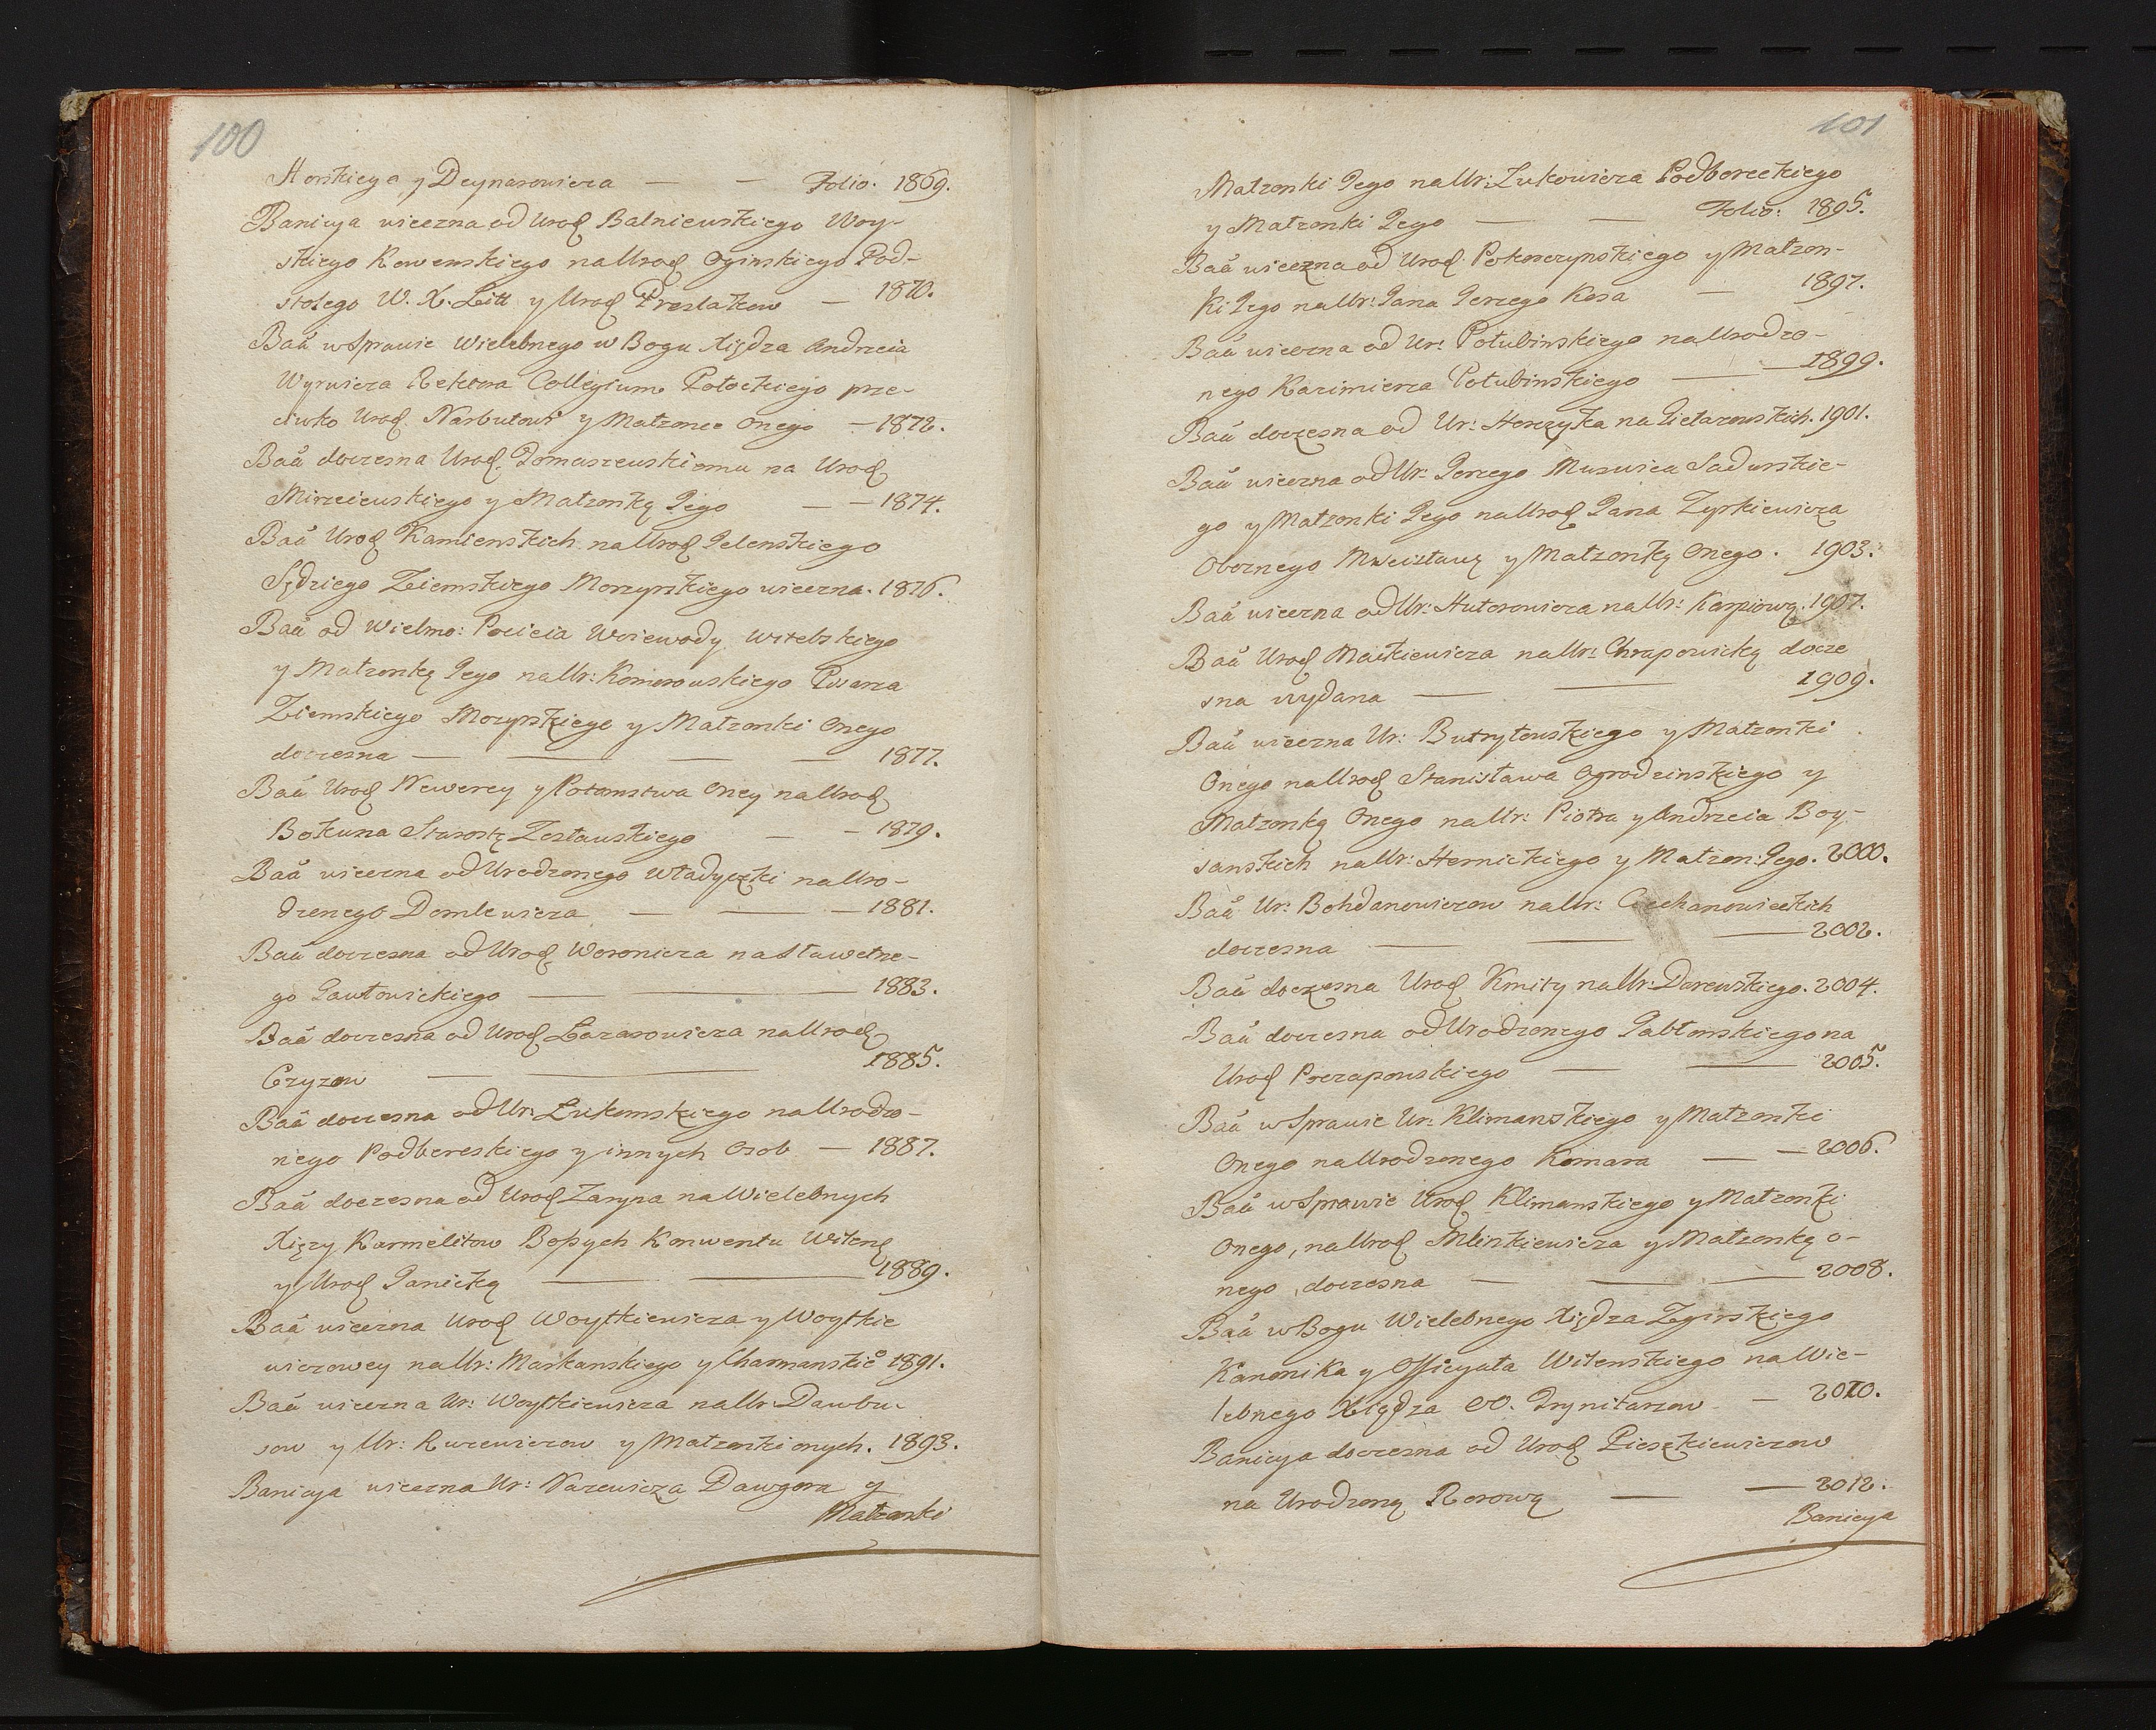 100
Horskiego y Deynarowicza — — Folio. 1869.
Banicya wieczna od Urod Balniewskiego Woy-
skiego Kowenskiego na Urod Oginskiego Pod-
stolego W. X. Litt y Urod Przelakow — 1870.
Baã w Sprawie Wielebnego w Bogu Xiędza Andrzeia
Wyrwicza Rektora Collegium Połockiego prze-
ciwko Urod. Narbutowi y Małzonce Onego — 1872.
Baã doczesna Urod. Domaszewskiemu na Urod
Mirzeiewskiego y Małzonkę Jego — — 1874.
Baã Urod Kamienskich na Urod Jelenskiego
Sędziego Ziemskiego Mozyrskiego wieczna. 1876.
Baã od Wielmo: Pocieia Woiewody Witebskiego
y Małzonkę Jego na Ur: Komorowskiego Pisarza
Ziemskiego Mozyrskiego y Małzonki Onego
doczesna — — — — 1877.
Baã Urod Newerey y Potomstwa Oney na Urod
Bokuna Starostę Zosławskiego — — 1879.
Baã wieczna od Urodzonego Władyczki na Uro-
dzenego Domlewicza — — — 1881.
Baã doczesna od Urod Woronicza na Sławetne-
go Pawłowickiego — — 1883.
Baã doczesna od Urod Łazarowicza na Urod
Czyzow — — 1885.
Baã doczesna od Ur: Łukomskiego na Urodzo-
nego Podbereskiego y innych Osob — 1887.
Baã doczesna od Urod Zaryna na Wielebnych
Xięzy Karmelitow Bosych Konwentu Wilen
y Urod Janicką — — 1889.
Baã wieczna Urod Woytkiewicza y Woytkie
wiczowey na Ur: Markanskiego y Charmanskie 1891.
Baã wieczna Ur: Woytkiewicza na Ur: Dawbu-
sow y Ur: Kurewiczow y Małzonki onych. 1893.
Banicya wieczna Ur: Narewicza Dawgora y
Małzonki
101
Małzonki Jego na Ur: Zukowicza Podboreckiego
y Małzonki Jego — — Folio: 1895.
Baã wieczna od Urod: Pokoszynskiego y Małzon-
ki Jego na Ur: Jana Jerzego Kosa — 1897.
Baã wieczna od Ur: Połubinskiego na Urodzo-
nego Kazimierza Połubinskiego — — 1899.
Baã doczesna od Ur: Horczyka na Zielazowskich. 1901.
Baã wieczna od Ur: Jerzego Musnica Sadurskie-
go y Małzonki Jego na Urod Jana Zyrkiewicza
Obornego Mwcisławs y Małzonkę Onego. 1903.
Baã wieczna od Ur: Hutorowicza na Ur: Karpiową. 1907.
Baã Urod Maćkiewicza na Ur: Chrapowicką docze
sna wydana — — 1909.
Baã wieczna Ur: Butrytowskiego y Małzonki
Onego na Urod Stanisława Ogrodzinskiego y
Małzonkę Onego na Ur: Piotra y Andrzeia Boy-
sanskich na Ur: Hernickiego y Małzon: Jego. 2000.
Baã Ur: Bohdanowiczow na Ur: Ciechanowieckich
doczesna — — — 2002.
Baã doczesna Urod Kmity na Ur: Darewskiego. 2004.
Baã doczesna od Urodzonego Jabłonskiego na
Urod Poczapowskiego — — 2005.
Baã w Sprawie Ur: Klimanskiego y Małzonki
Onego na Urodzonego Komara — — 2006.
Baã w Sprawie Urod Klimanskiego y Małzonki
Onego, na Urod Mlinkiewicza y Małzonkę o-
nego, doczesna — — — 2008.
Baã w Bogu Wielebnego Xiędza Zgirskiego
Kanonika y Officyała Wilenskiego na Wie-
lebnego Xiędza OO. Trynitarzow — 2010.
Banicya doczesna od Urod Pieszkiewiczow
na Urodzoną Rorową — — 2012.
Banicya